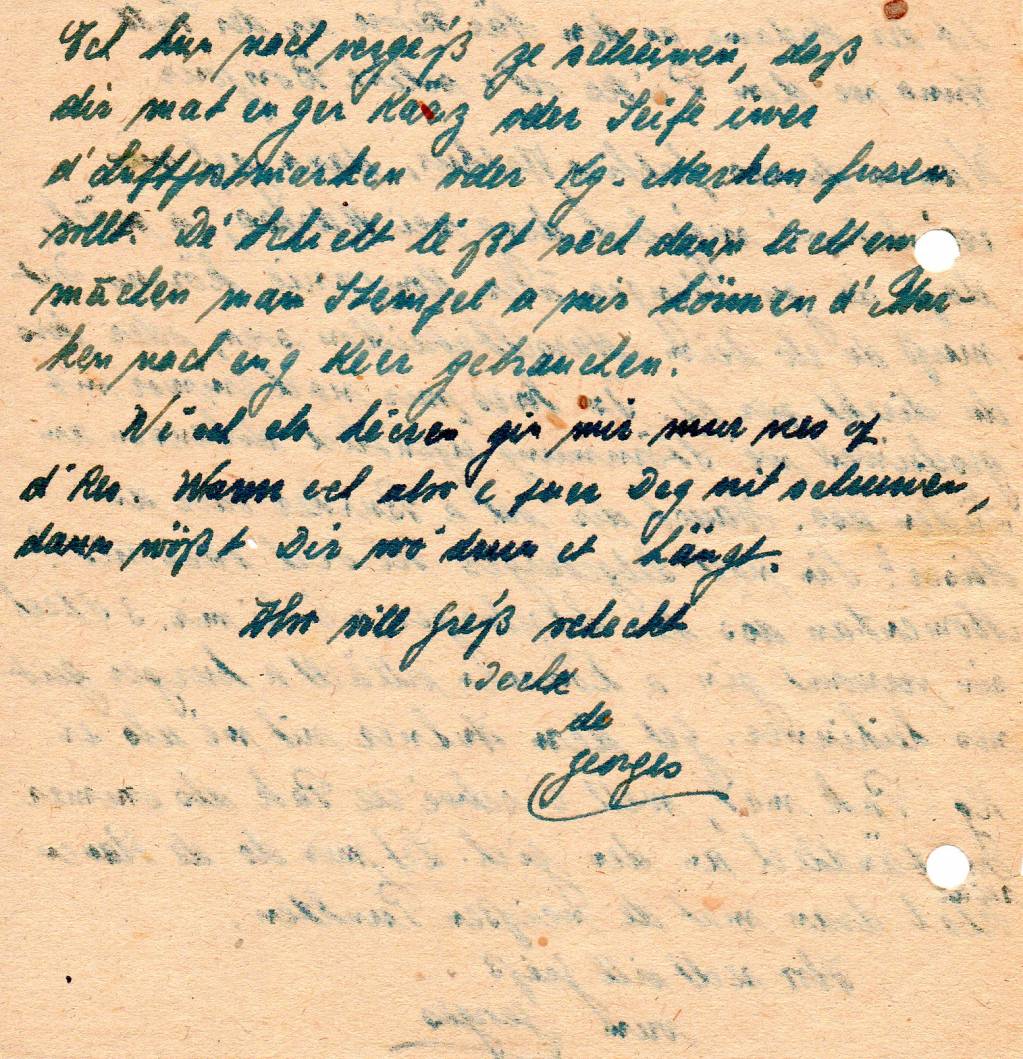 Ech hun nach vergeß ze schreiwen, daß
dir mat enger Kärz oder Seife iwer
d'Luftpostmarken oder Kg. Marken fusen
sollt. Dé Schicht léßt sech dann liecht ewe
mächen mam Stempel a mir können d'Mar-
ken nach eng Keier gebrauchen.
Wi ech elo héieren gin mir mur nes op
d'Res. Wann ech also e puer Deg nit schreiwen,
dann wößt Dir wó drun et längt.
Also vill Gréß schéckt
Iech
de
Georges